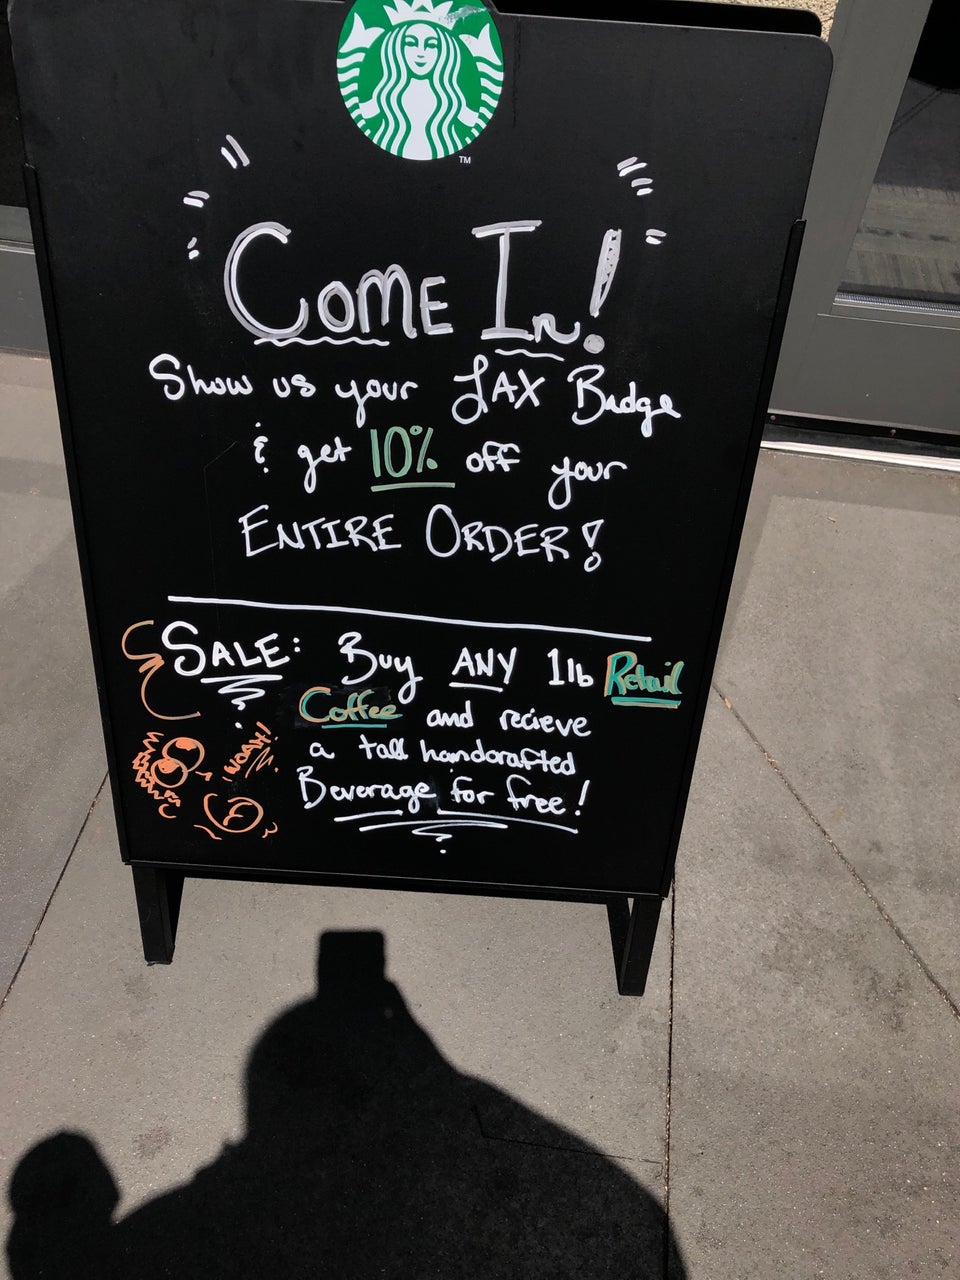 TM
COME IN!
Show us your LAX Badge
& get 10% off your
ENTIRE ORDER!
SALE: Buy ANY 1lb Retail
Coffee and recieve
a tall handcrafted
Beverage for free!
WOAH!